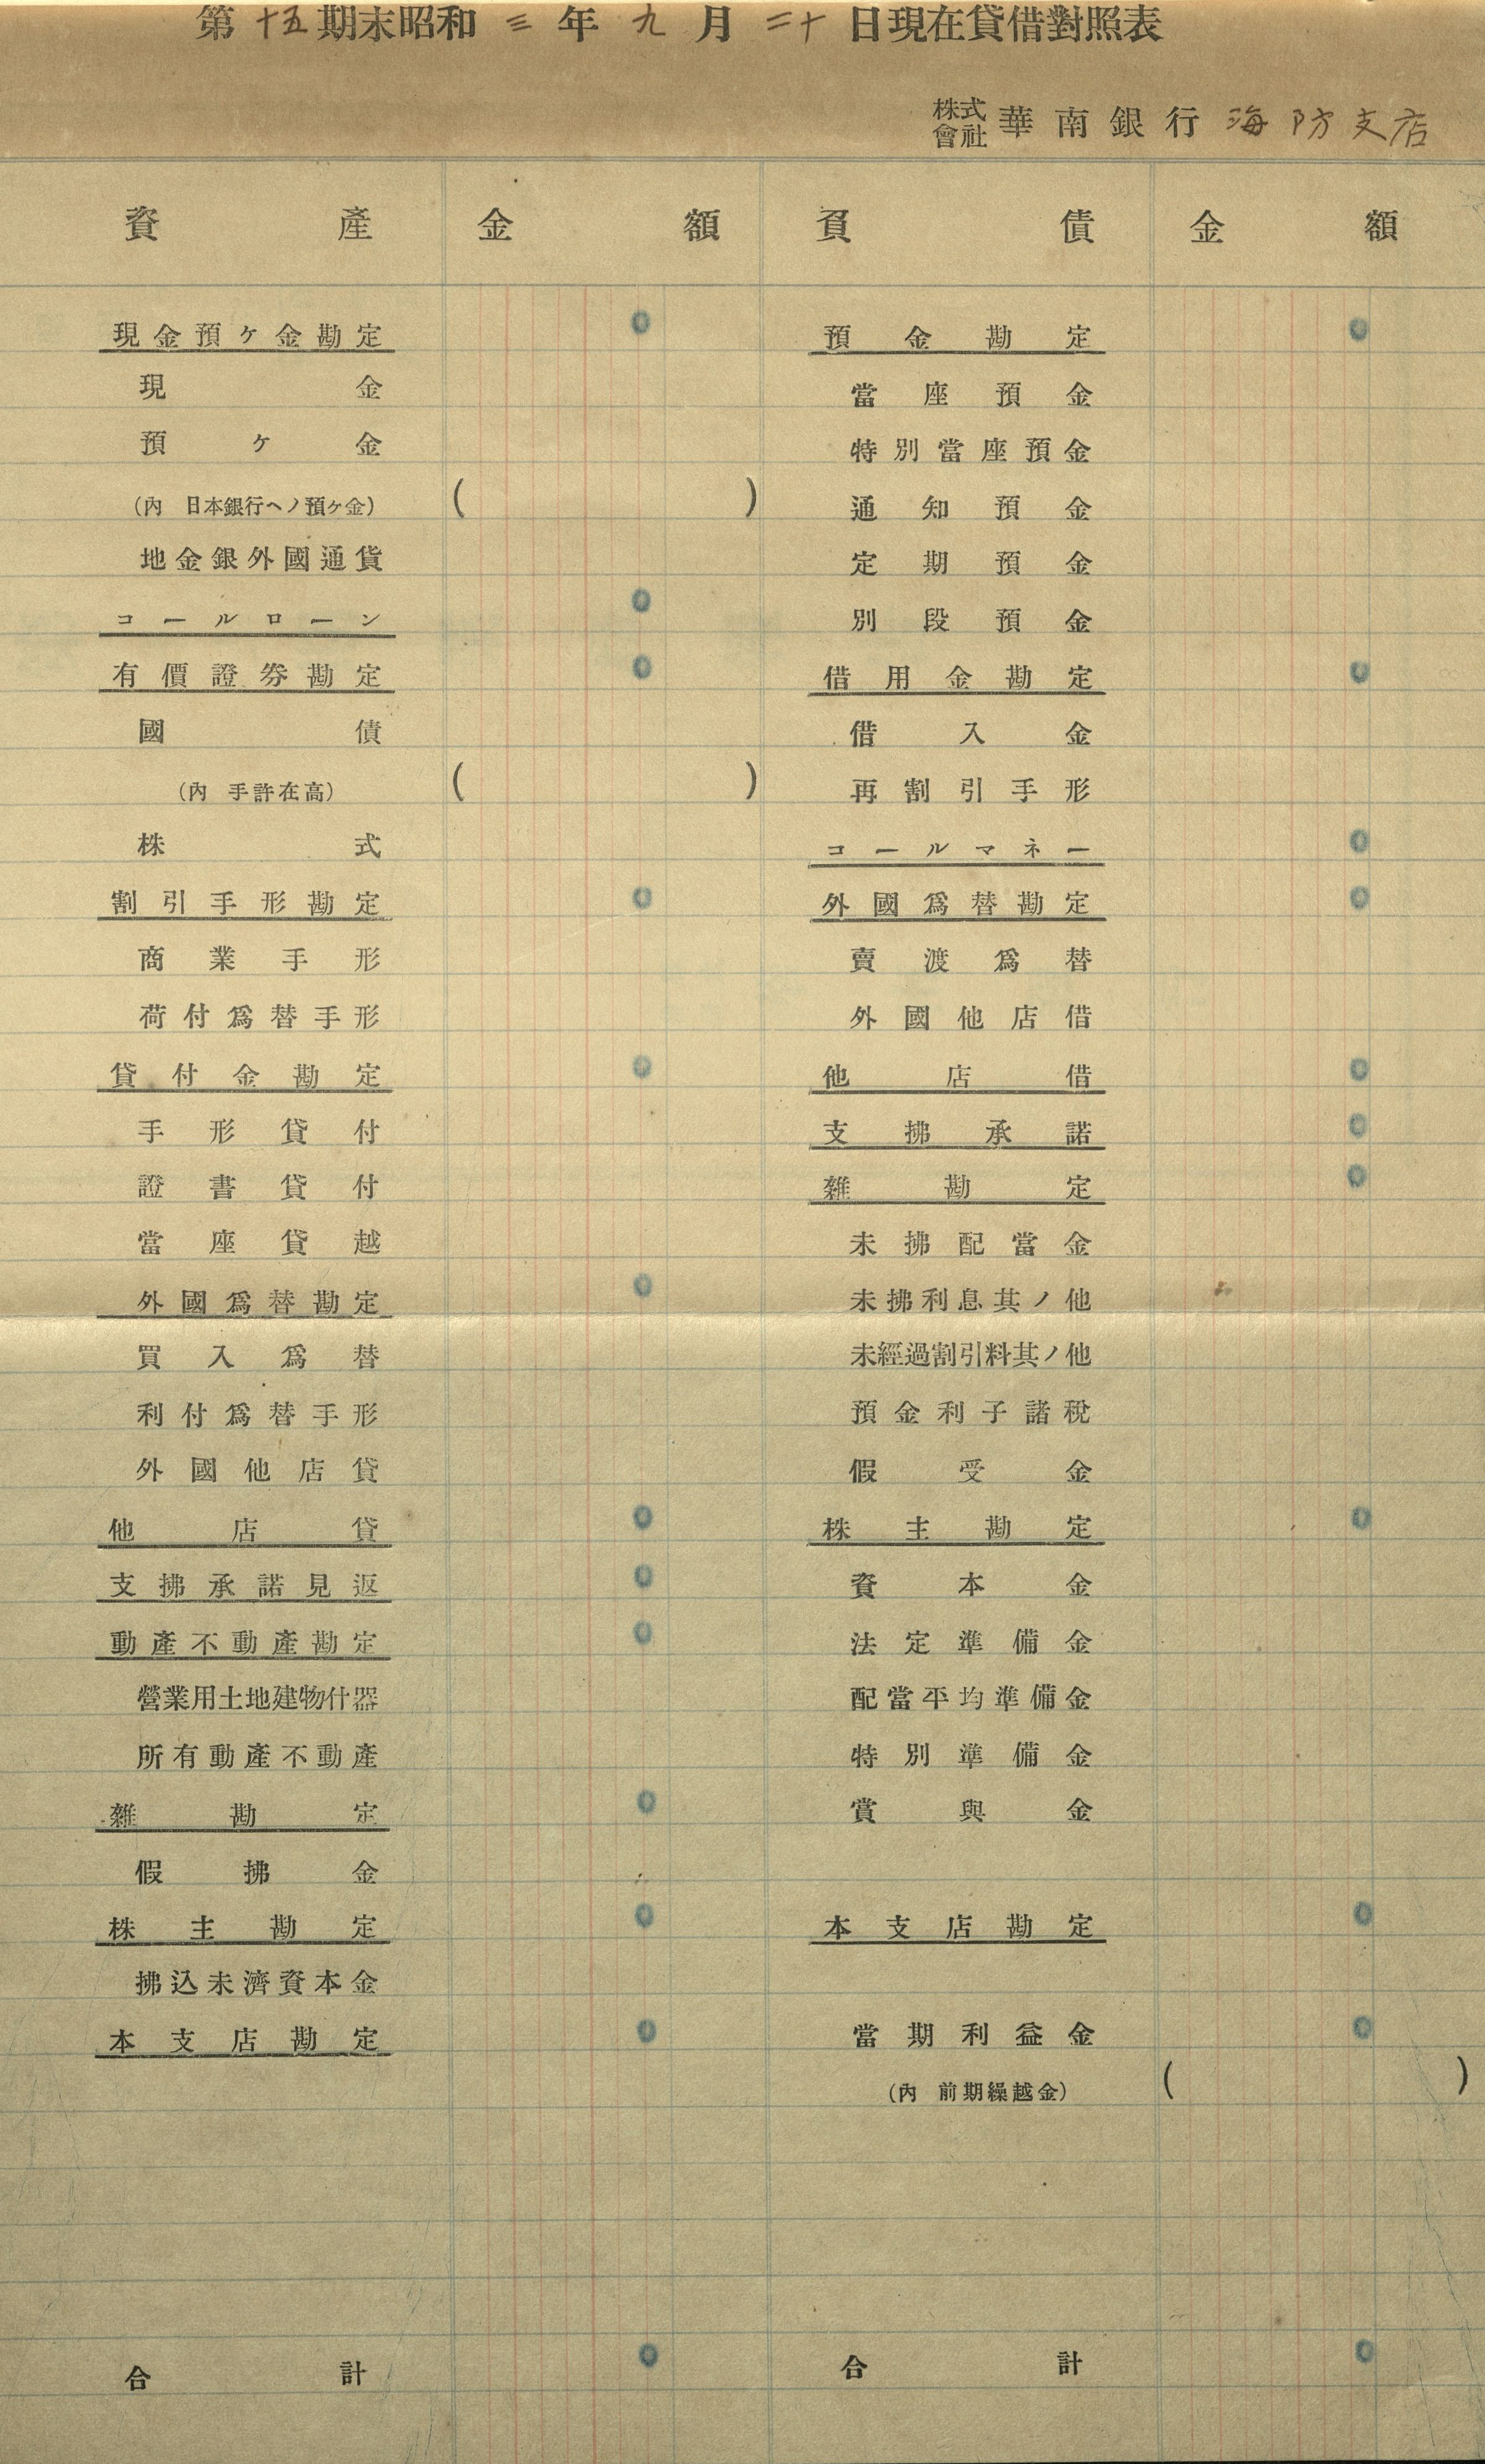 第十五期末昭和三年九月二十日現在貸借對照表
株式會社華南銀行海防支店
資產 金額 負債 金額
現金預ケ金勘定 0 預金勘定 0
現金 當座預金
預ケ金 特別當座預金
(內 日本銀行ヘノ預ケ金) ( ) 通知預金
地金銀外國通貨 定期預金
コールローン 0 別段預金
有價證券勘定 0 借用金勘定 0
國債 借入金
(內 手許在高) ( ) 再割引手形
株式 コールマネー 0
割引手形勘定 0 外國爲替勘定 0
商業手形 賣渡爲替
荷付爲替手形 外國他店借
貸付金勘定 0 他店借 0
手形貸付 支拂承諾 0
證書貸付 雜勘定 0
當座貸越 未拂配當金
外國爲替勘定 0 未拂利息其ノ他
買入爲替 未經過割引料其ノ他
利付爲替手形 預金利子諸稅
外國他店貸 假受金
他店貸 0 株主勘定 0
支拂承諾見返 0 資本金
動產不動產勘定 0 法定準備金
營業用土地建物什器 配當平均準備金
所有動產不動產 特別準備金
雜勘定 0 賞與金
假拂金
株主勘定 0 本支店勘定 0
拂込未濟資本金
本支店勘定 0 當期利益金 0
(內 前期繰越金) ( )
合計 0 合計 0